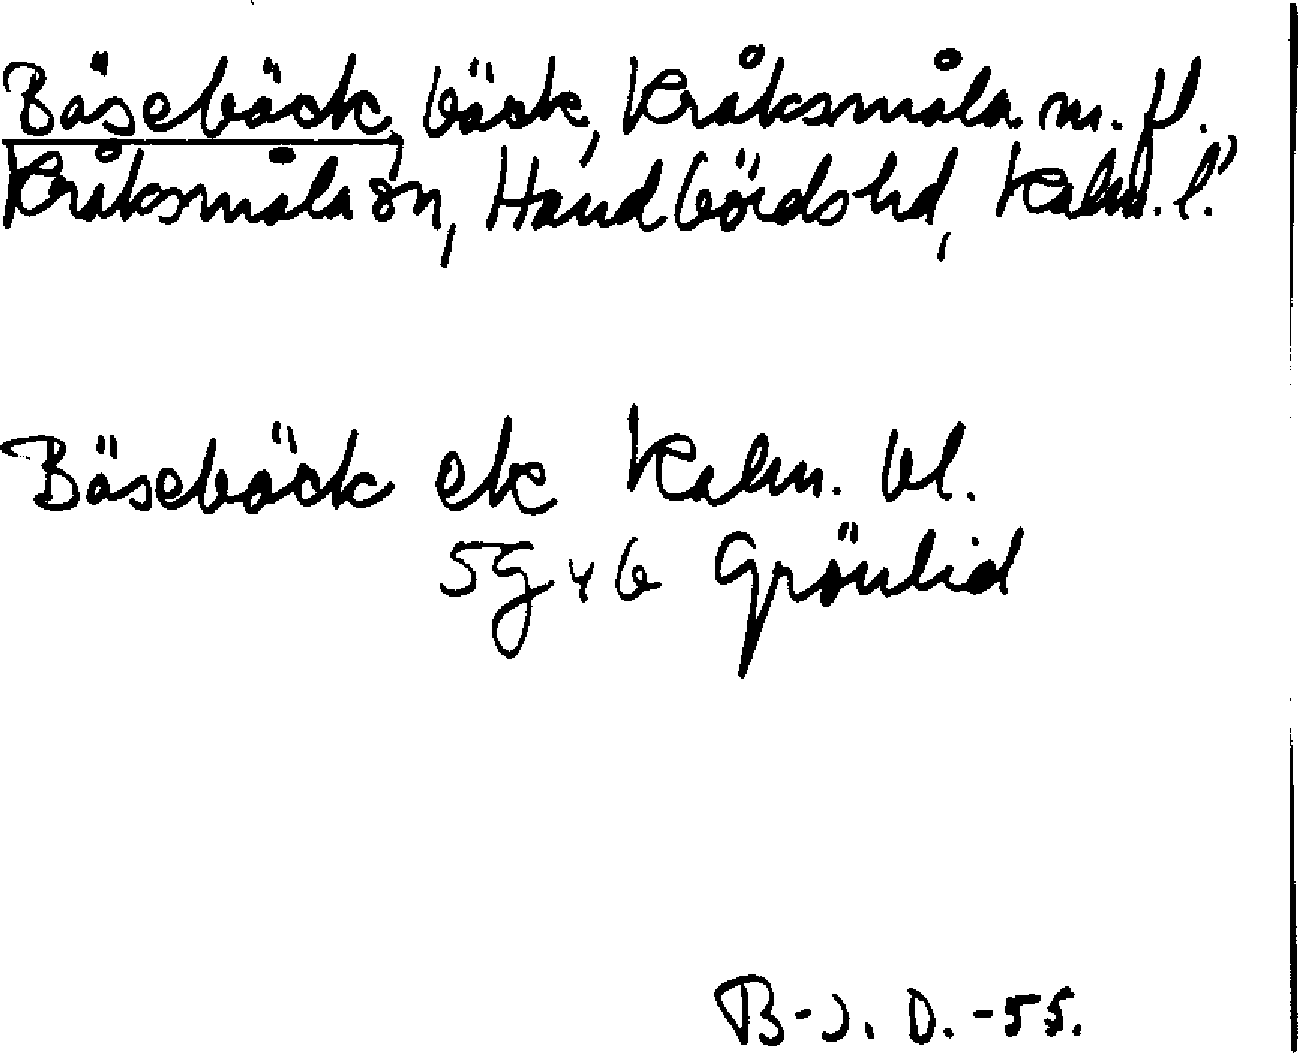 Bäsebäck, bäck, Kråksmåla m. fl.,
Kråksmåla sn, Handbörds hd, Kalm. l.
Bäsebäck ek Kalm. bl.
5G y b Grönlid
B-J. D. -55.